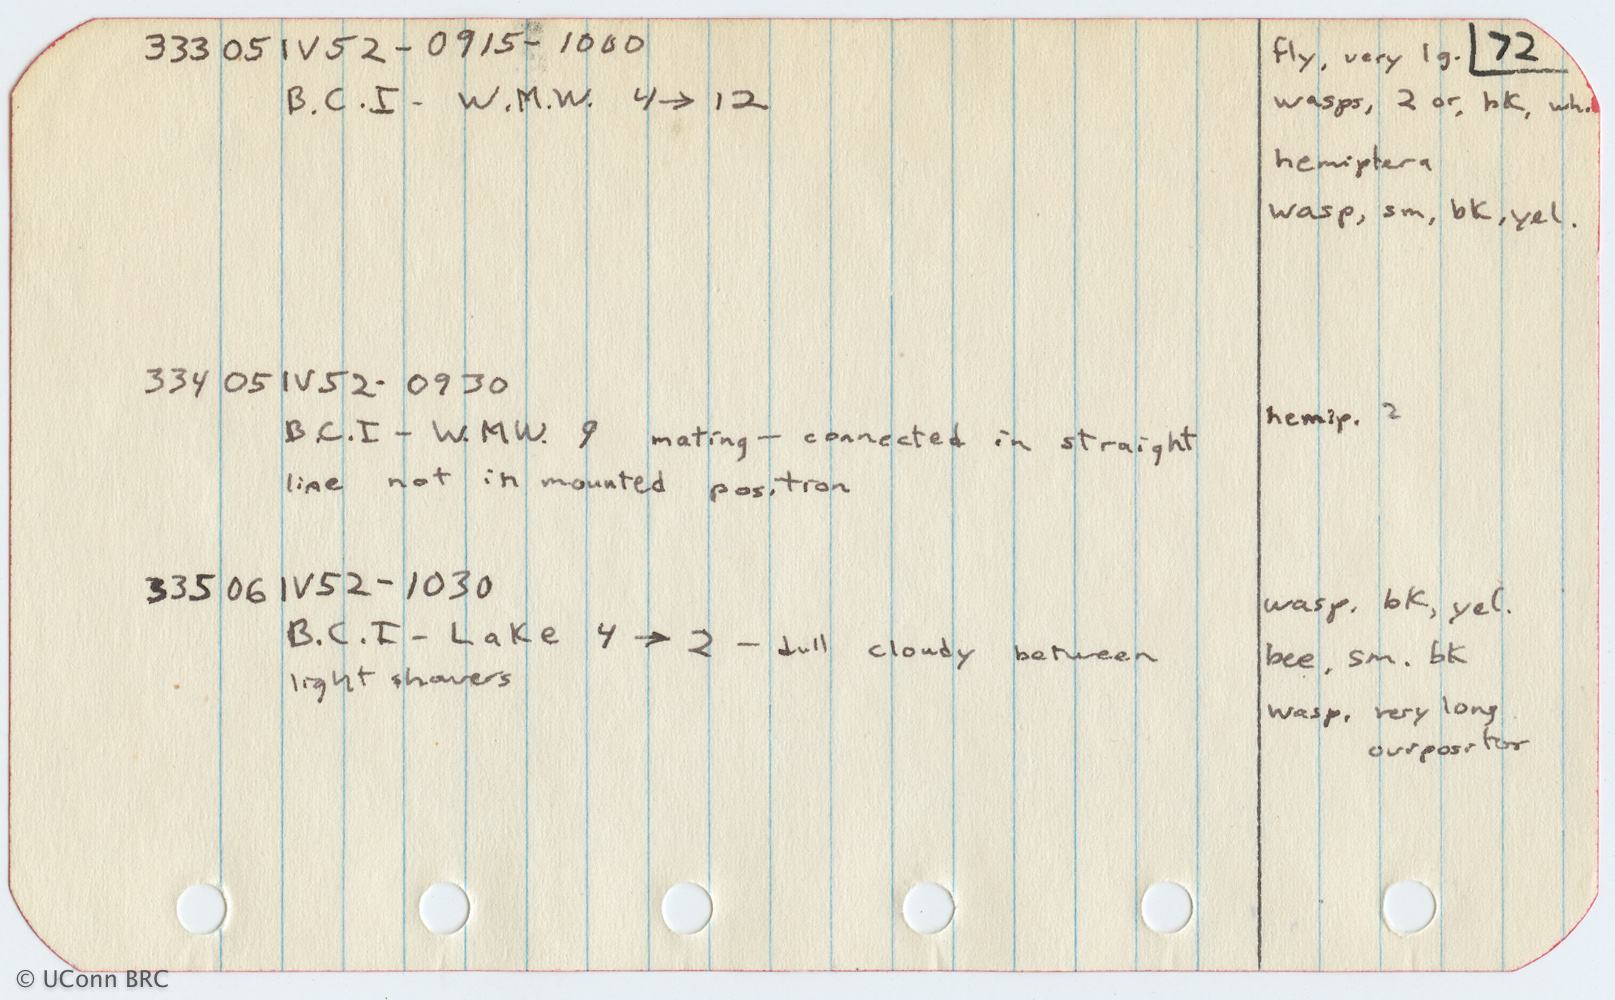 72
333 05 IV 52 - 0915 - 1000
B.C.I - W.M.W. 4 → 12
fly, very lg.
wasps, 2 or, bk, wh.
hemiptera
wasp, sm, bk, yel.
334 05 IV 52 - 0930
B.C.I - W.M.W. 9 mating - connected in straight
line not in mounted position
hemip. 2
335 06 IV 52 - 1030
B.C.I - Lake 4 → 2 - dull cloudy between
light showers
wasp. bk, yel.
bee, sm. bk
wasp. very long
ovipositor
© UConn BRC